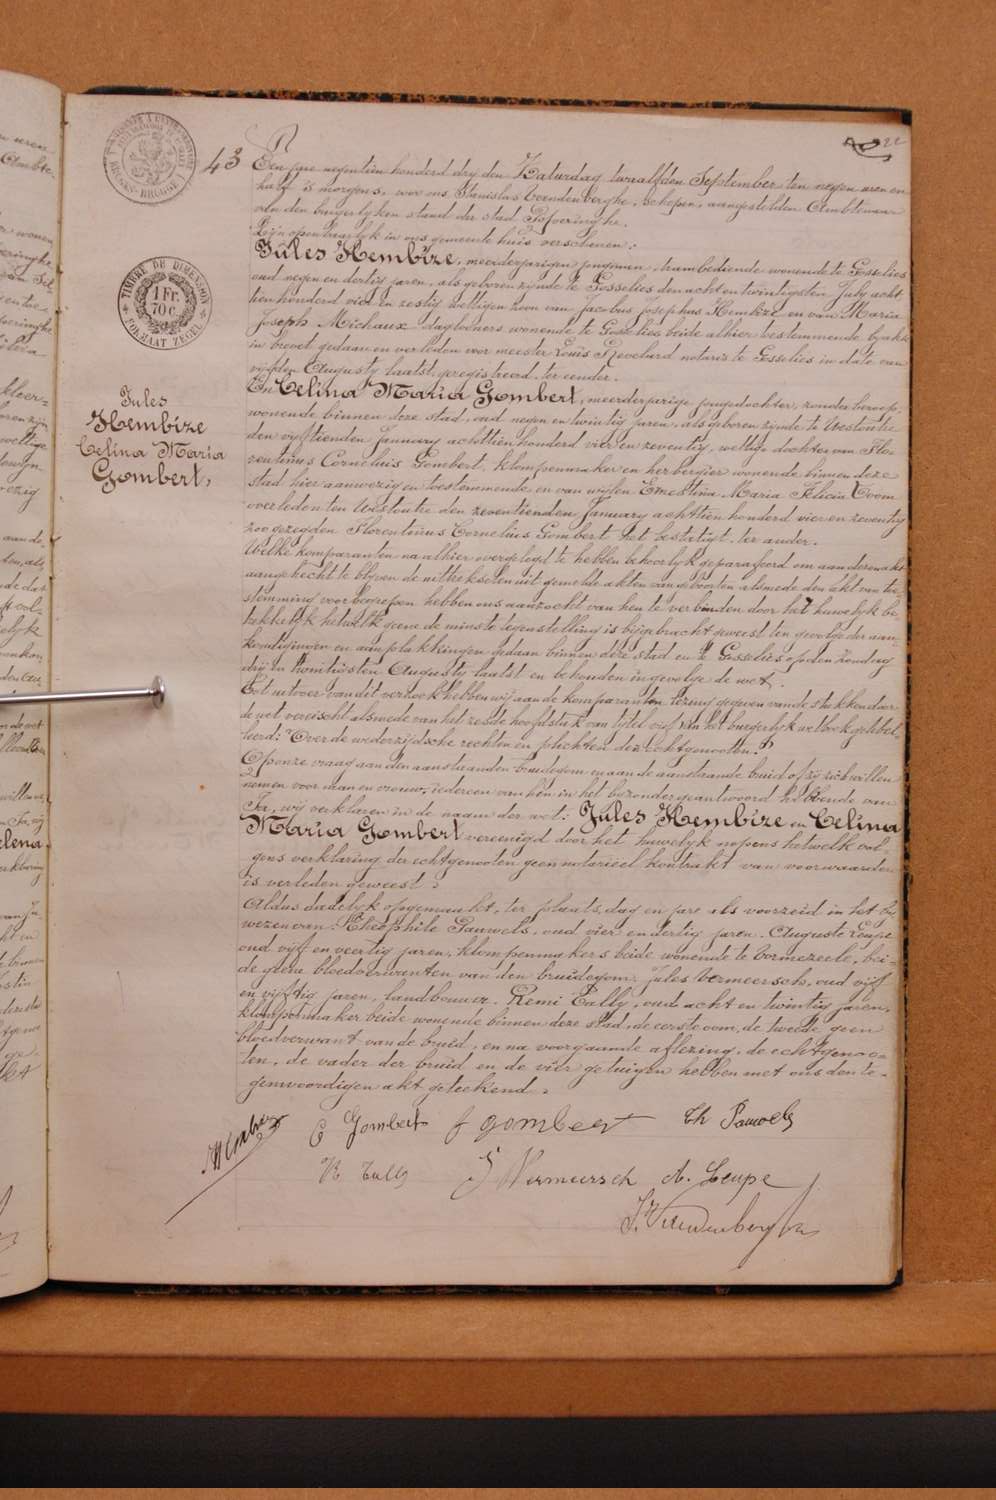 22
43
Een jare negentien honderd dry den Zaturdag twaalfden September ten negen uren en
half 's morgens, voor ons Stanislas Vandenberghe, Schepen, aangestelden Ambtenaar
van den burgerlyken stand der stad Poperinghe.
Zijn openbaarlyk in ons gemeente huis verschenen:
Jules Hembize, meerderjarigen jongman, trambediende wonende te Gosselies
oud negen en dertig jaren, als geboren zynde te Gosselies den acht en twintigsten July acht
tien honderd vier en zestig wettigen zoon van Jacobus Josephus Hembize en van Maria
Joseph Michaux dagloners wonende te Gosselies beide alhier toestemmende by akt
in brevet gedaan en verleden voor meester Louis Revelard notaris te Gosselies in date van
vijfden Augusty laatst, geregistreerd, ter eender.
En Celina Maria Gombert, meerderjarige jongedochter, zonder beroep,
wonende binnen deze stad, oud negen en twintig jaren, als geboren zynde te Westoutre
den vyftienden January achttien honderd vier en zeventig, wettige dochter van Flo-
rentinus Cornelius Gombert, klompenmaker en herbergier wonende binnen deze
stad hier aanwezig en toestemmende en van wylen Ernestina Maria Felicia Coom
overleden ten Westoutre den zeventienden January achttien honderd vier en zeventig
zoo gezegden Florentinus Cornelius Gombert het bestatigt. ter ander.
Welke komparanten na alhier overgelegd te hebben behoorlyk geparafeerd om aan deren akt
aangehecht te blyven de uittreksels en uit gemelde akten van geboorten alsmede den akt van toe-
stemming voorbegrepen hebben ons aanzocht van hen te verbinden door het huwelyk be-
trekkelyk hetwelk geene de minste tegenstelling is bijgebracht geweest ten gevolge der aan-
kondigingen en aanplakkingen gedaan binnen deze stad en te Gosselies op den zondag
drij en twintigsten Augusty laatst en behouden ingevolge de wet.
Tot uitvoer van dit verzoek hebben wij aan de komparanten lezing gegeven van de stukken door
de wet vereischt alsmede van het zesde hoofdstuk van tytel vyf van het burgerlyk wetboek getitel-
leerd: "Over de wederzydsche rechten en plichten der Echtgenooten."
Op onze vraag aan den aanstaanden bruidegom en aan de aanstaande bruid of zij zich willen
nemen voor man en vrouw, iedereen van hen in het bezonder geantwoord hebbende van
Ja, wij verklaren in de naam der wet: Jules Hembize en Celina
Maria Gombert vereenigd door het huwelyk nopens hetwelk vol-
gens verklaring der echtgenooten geen notarieel kontrakt van voorwaarden
is verleden geweest.
Aldus dadelyk opgemaakt, ter plaats, dag en jare als voorzeid in het by
wezen van: Théophile Pauwels, oud vier en dertig jaren. Auguste Leupe
oud vyf en veertig jaren, klompenmakers beide wonende te Vormezeele, bei-
de geene bloedverwanten van den bruidegom. Jules Vermeersch, oud vijf
en vijftig jaren, landbouwer. Remi Tally, oud acht en twintig jaren,
klompenmaker beide wonende binnen deze stad, de eerste oom, de tweede geen
bloedverwant van de bruid, en na voorgaande aflezing, de echtgenoo-
ten, de vader der bruid en de vier getuigen hebben met ons den te-
genwoordigen akt geteekend.
TIMBRE DE DIMENSION
1 Fr.
70 c.
FORMAAT ZEGEL
Jules
Hembize
Celina Maria
Gombert,
Hembize
C Gombert f gombert Th Pauwels
R Tally J Vermeersch A. Leupe
S. Vandenberghe